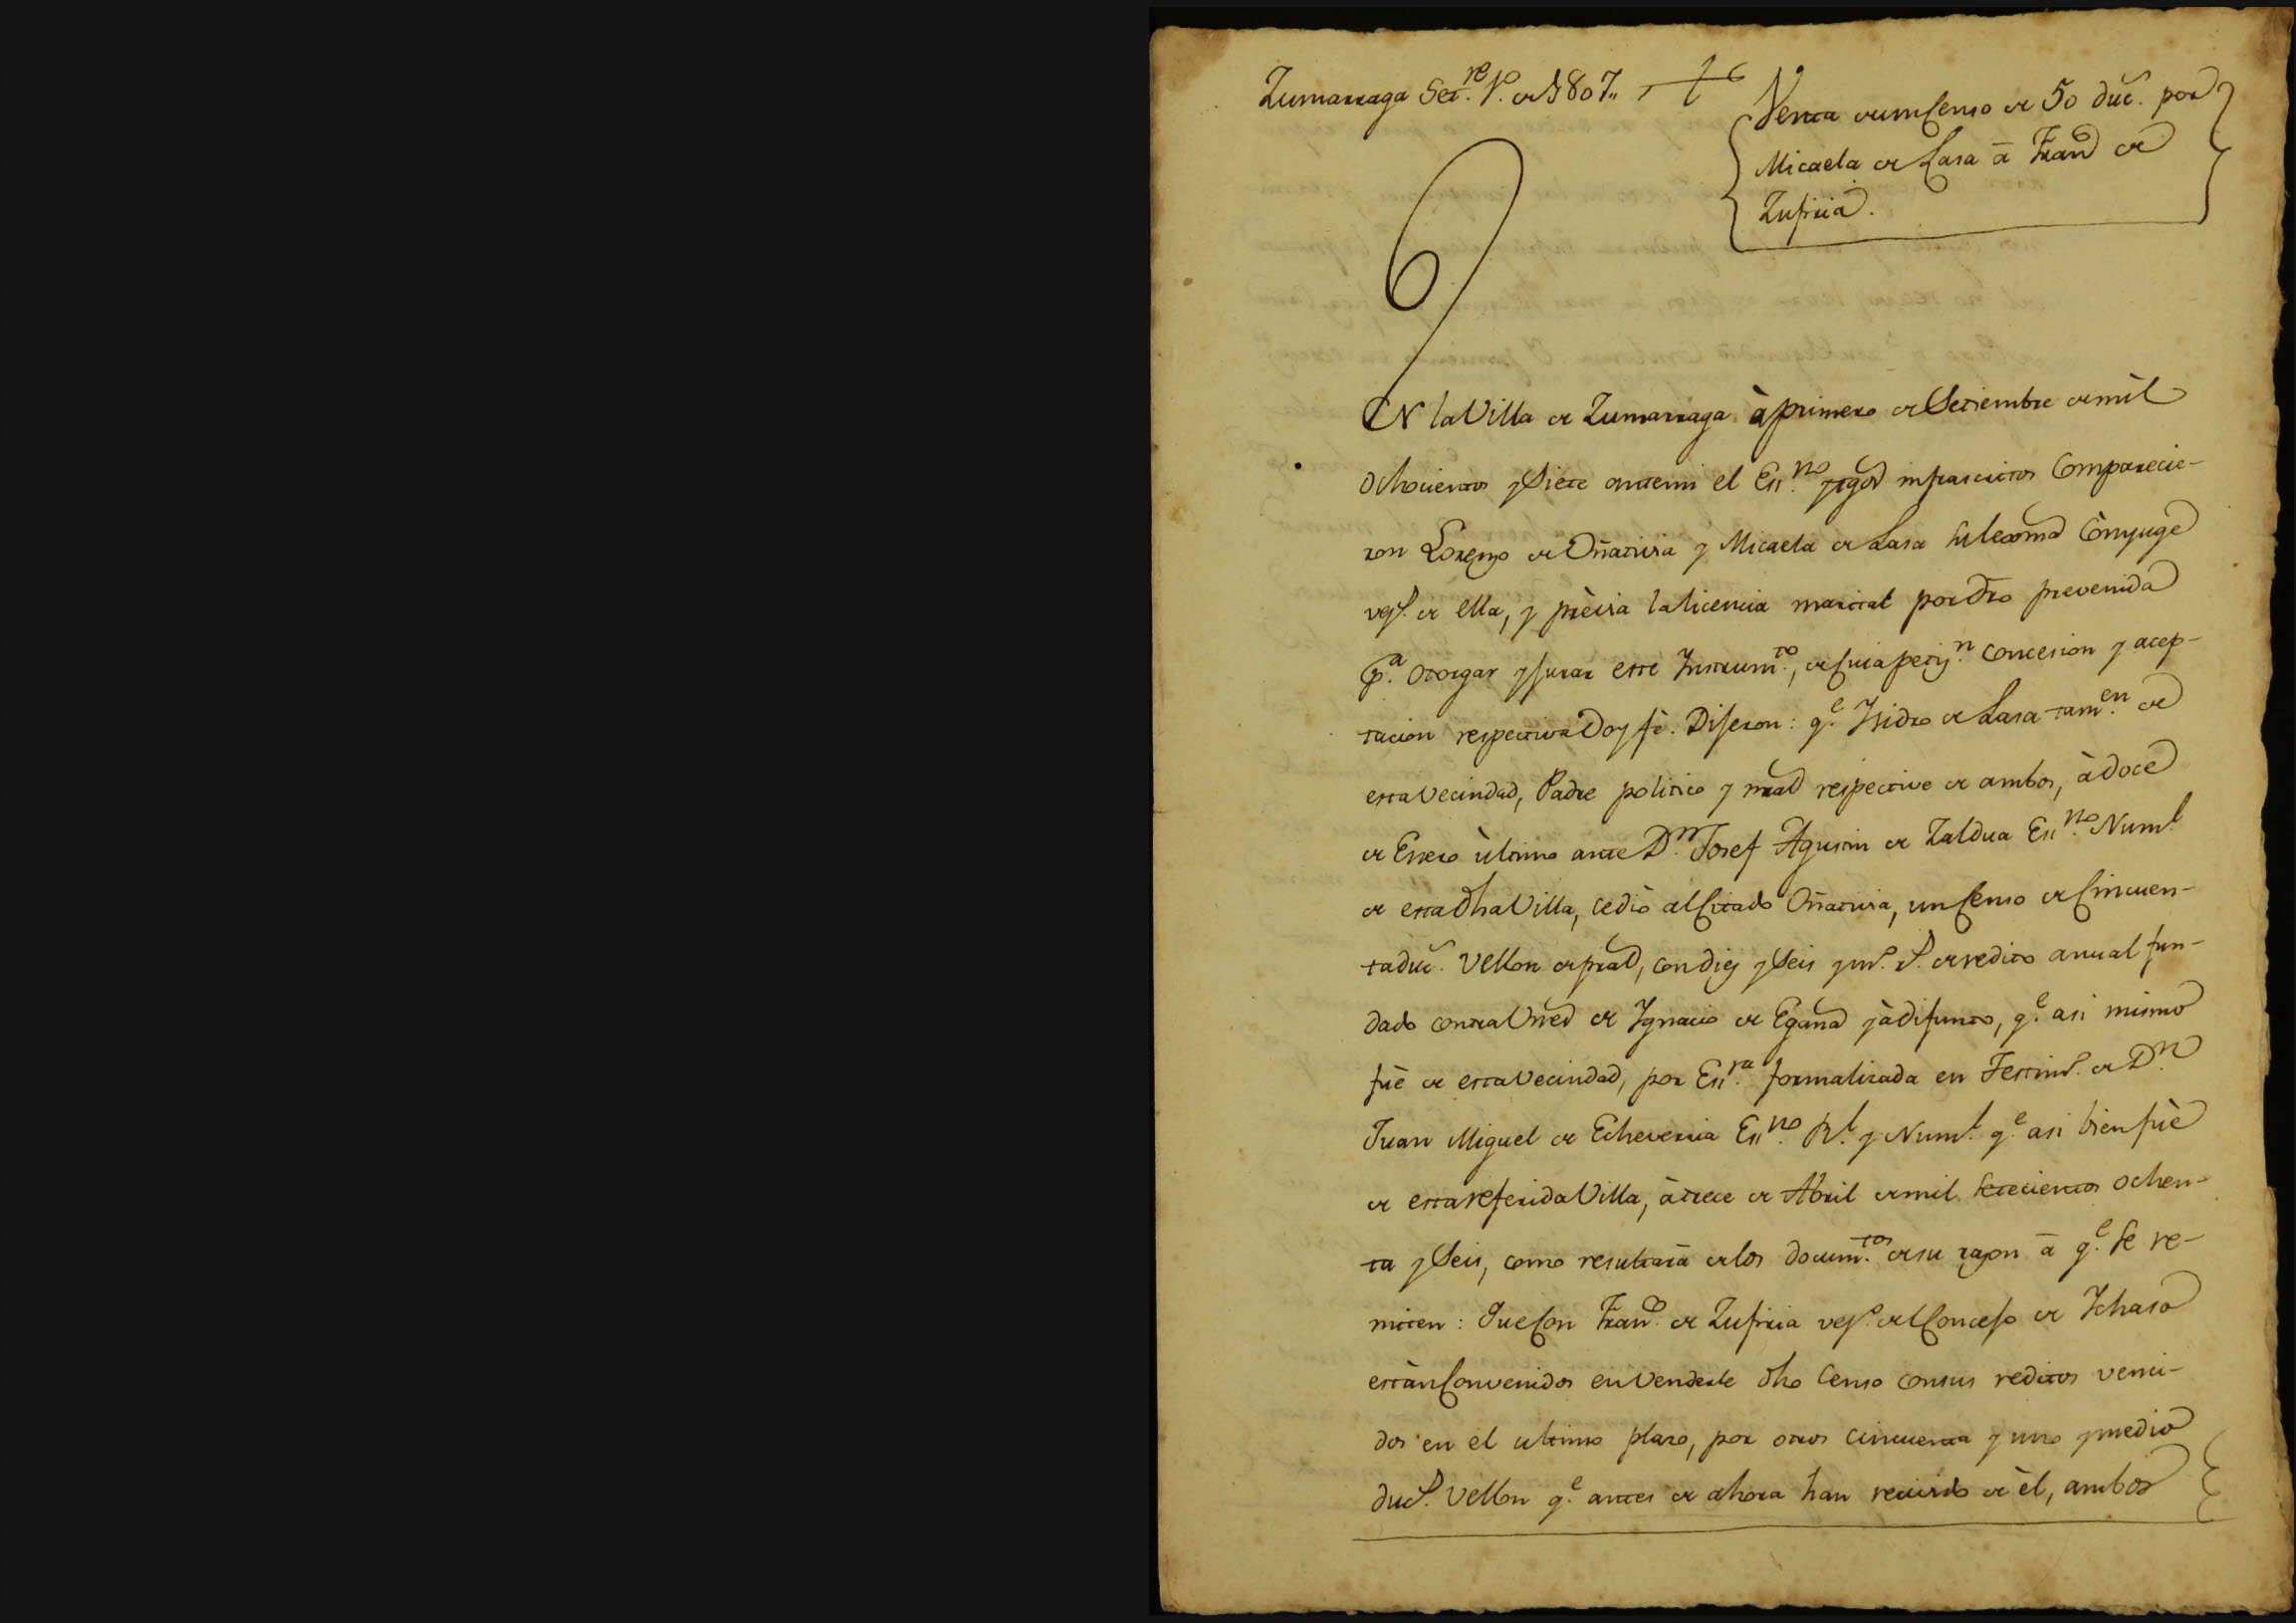 Zumarraga Set.re 1.o de 1807.,
Venta de un Censo de 50 duc.s por
Micaela de Lasa â Fran.co de
Zufiria.
EN la Villa de Zumarraga à primero de Setiembre de mil
ochocientos y Siete ante mi el Ess.no y tgos infrascritos Comparecie-
ron Lorenzo de Oñativia y Micaela de Lasa su lexma Cònyuge
vez.s de ella, y prèvia la licencia marital por dro prevenida
p.a otorgar y jurar este Instrum.to, de Cuia petiz.n concesion y acep-
tacion respectiva Doy fè. Dijeron: q.e Ysidro de Lasa tam.en de
esta Vecindad, Padre politico y nral respective de ambos, à doce
de Enero ùltimo ante D.n Josef Agustin de Zaldua Ess.no Num.l
de esta dha Villa, cediò al Citado Oñativia, un Censo de Cincuen-
ta duc.s Vellon de pral, con diez y Seis y m.o r.s de redito anual fun-
dado contra Vnes de Ygnacio de Egaña yà difunto, q.e asi mismo
fuè de esta Vecindad, por Ess.ra formalizada en Testim.o de D.n
Juan Miguel de Echeverria Ess.no R.l y Num.l q.e asi bien fuè
de esta referida Villa, à trece de Abril de mil setecientos ochen-
ta y Seis, como resultarà de los docum.tos de su razon â q.e se re-
miten: Que Con Fran.co de Zufiria vez.o del Concejo de Ychaso
estàn Convenidos en Venderle dho Censo con sus reditos venci-
dos en el ultimo plazo, por otros cincuenta y uno y medio
duc.s Vellon q.e antes de ahora han recivido de èl, ambos